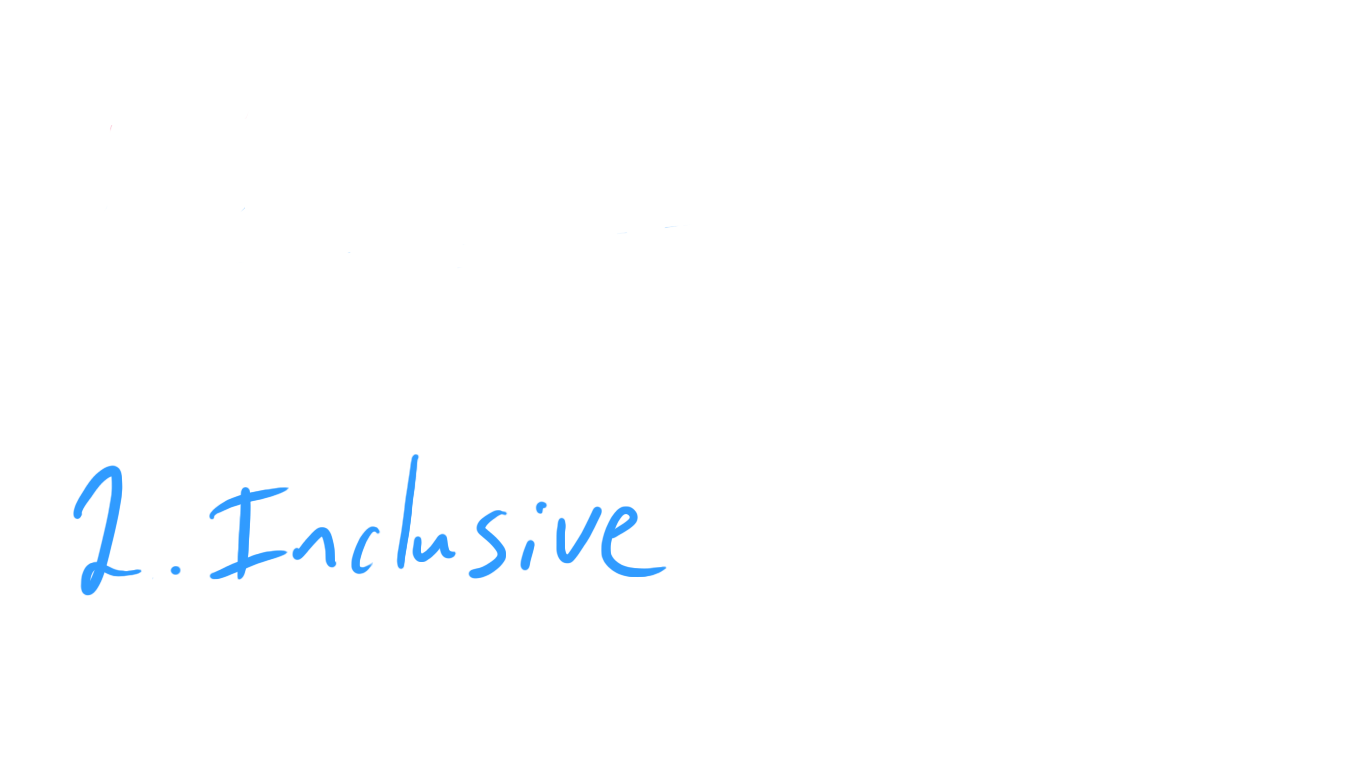 2. Inclusive